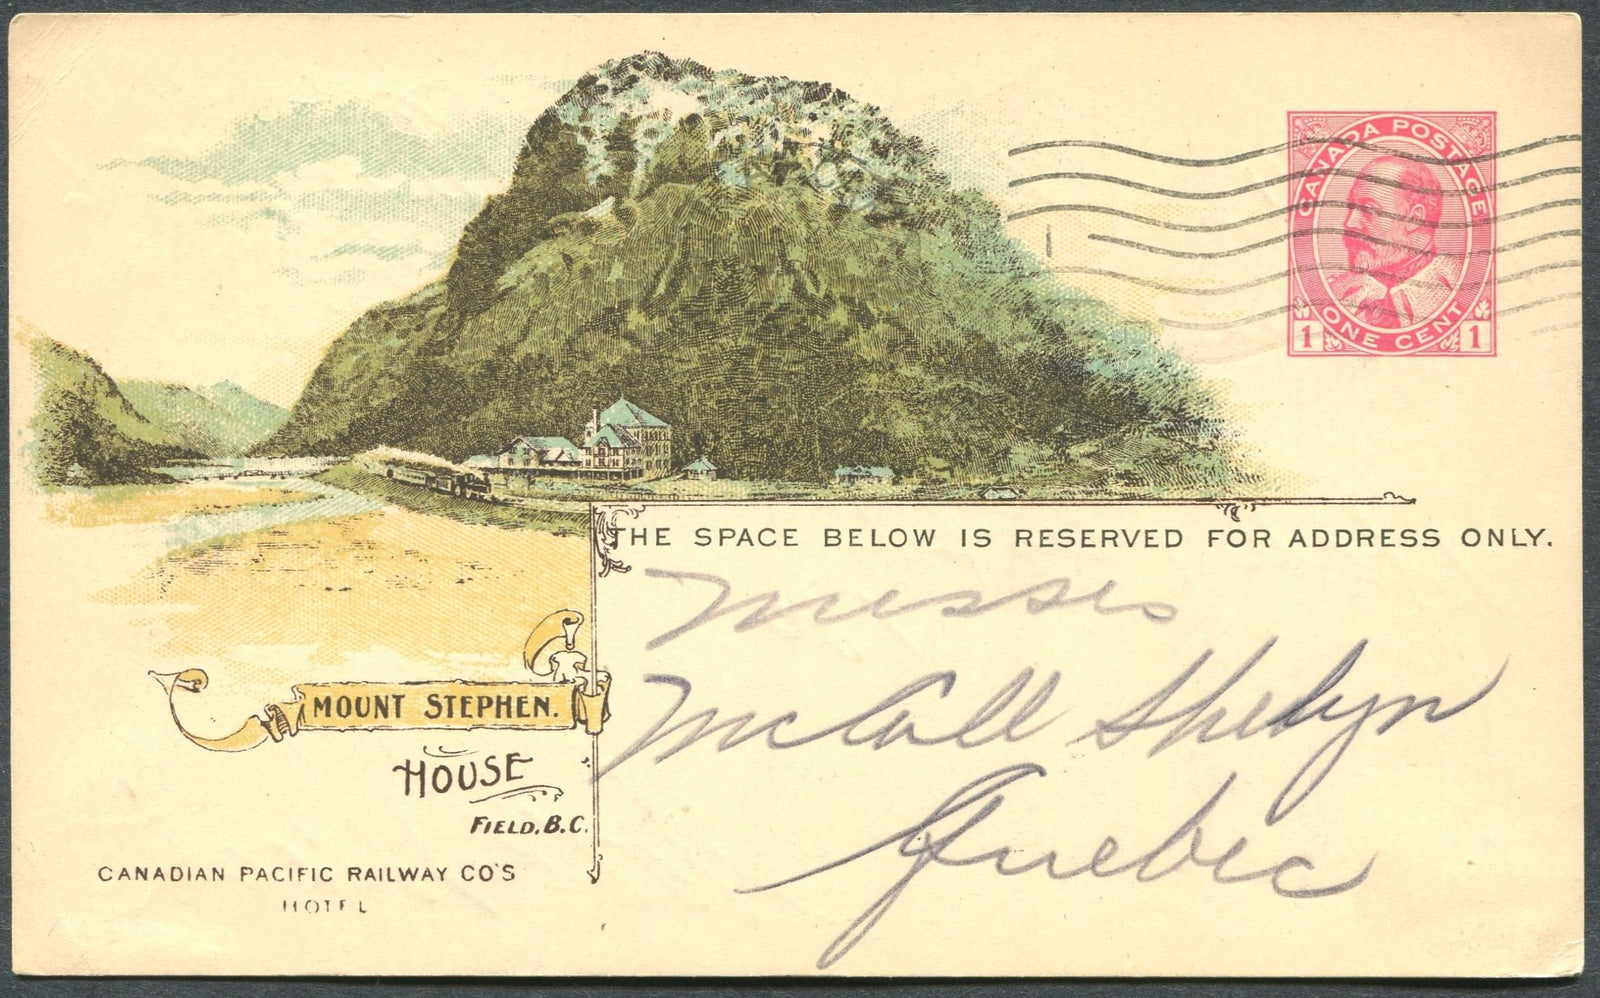 CANADA POSTAGE
ONE CENT
1 1
THE SPACE BELOW IS RESERVED FOR ADDRESS ONLY.
Messrs
McCall Shehyn
Quebec
MOUNT STEPHEN.
HOUSE
FIELD, B.C.
CANADIAN PACIFIC RAILWAY CO'S
HOTEL